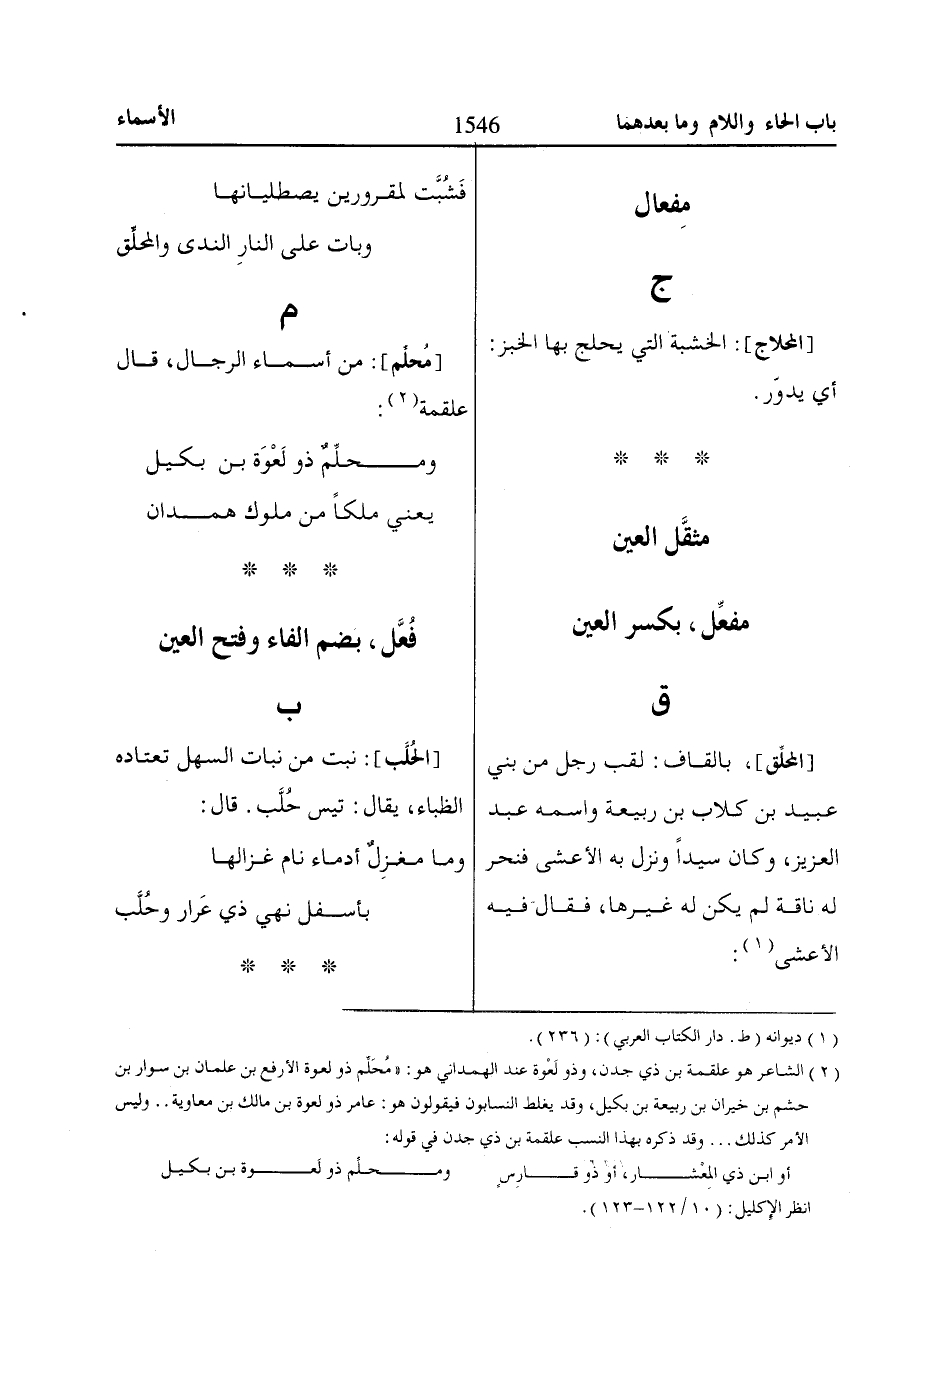 باب الحاء واللام وما بعدهما
1546
الأسماء
مِفعال
ج
[المحلاج]: الخشبة التي يحلج بها الخبز:
أي يدوَّر.
* * *
مثقَّل العين
مفعِّل، بكسر العين
ق
[المحلِّق]، بالقاف: لقب رجل من بني
عبيد بن كلاب بن ربيعة واسمه عبد
العزيز، وكان سيداً ونزل به الأعشى فنحر
له ناقة لم يكن له غيرها، فقال فيه
الأعشى(١):
فَشُبَّت لمقرورين يصطليانها
وبات على النارِ الندى والمحلِّق
م
[مُحلِّم]: من أسماء الرجال، قال
علقمة(٢):
ومحلِّمٌ ذو لَعْوَة بن بكيل
يعني ملكاً من ملوك همدان
* * *
فُعَّل، بضم الفاء وفتح العين
ب
[الحُلَّب]: نبت من نبات السهل تعتاده
الظباء، يقال: تيس حُلَّب. قال:
وما مغزِلٌ أدماء نام غزالها
بأسفل نهي ذي عَرار وحُلَّب
* * *
(١) ديوانه (ط. دار الكتاب العربي): (٢٣٦).
(٢) الشاعر هو علقمة بن ذي جدن، وذو لَعْوة عند الهمداني هو: «مُحَلِّم ذو لعوة الأرفع بن علمان بن سوار بن
حشم بن خيران بن ربيعة بن بكيل، وقد يغلط النسابون فيقولون هو: عامر ذو لعوة بن مالك بن معاوية.. وليس
الأمر كذلك... وقد ذكره بهذا النسب علقمة بن ذي جدن في قوله:
أو ابن ذي المِعْشار، أو ذو قارسٍ ومحلِّم ذو لَعوة بن بكيل
انظر الإكليل: (١٠/ ١٢٢-١٢٣).